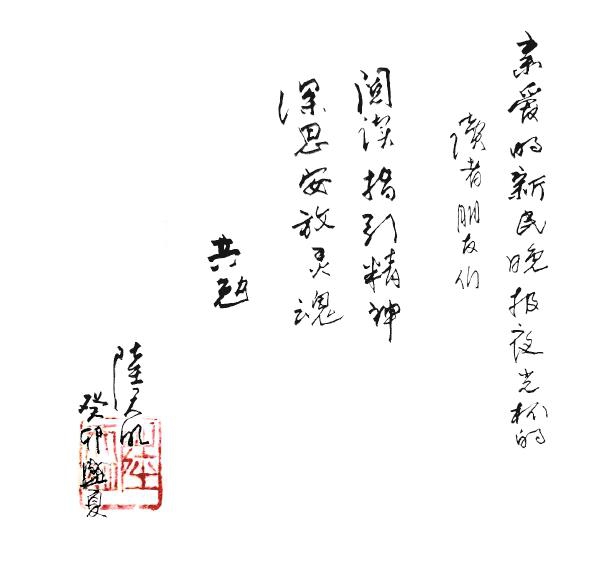 亲爱的新民晚报夜光杯的
读者朋友们
阅读指引精神
深思安放灵魂
共勉
陸天明
癸卯盛夏